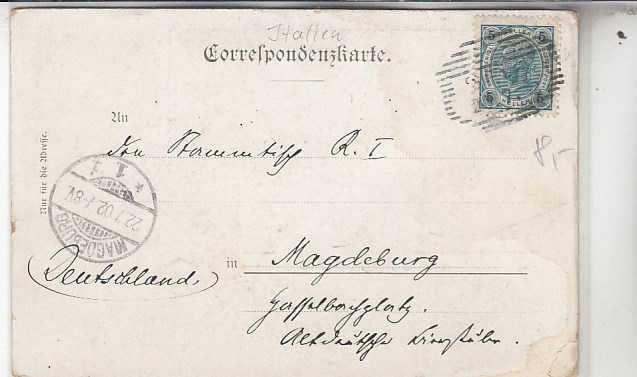 Italien
Correspondenzkarte.
5 HELLER 5
5 HELLER 5
An
den Stammtisch R. I
Nur für die Adresse.
* 1 1
22.7.02.7-8V.
MAGDEBURG
8,-
(Deutschland)
in Magdeburg
Hasselbachplatz.
Altdeutsche Bierstube.